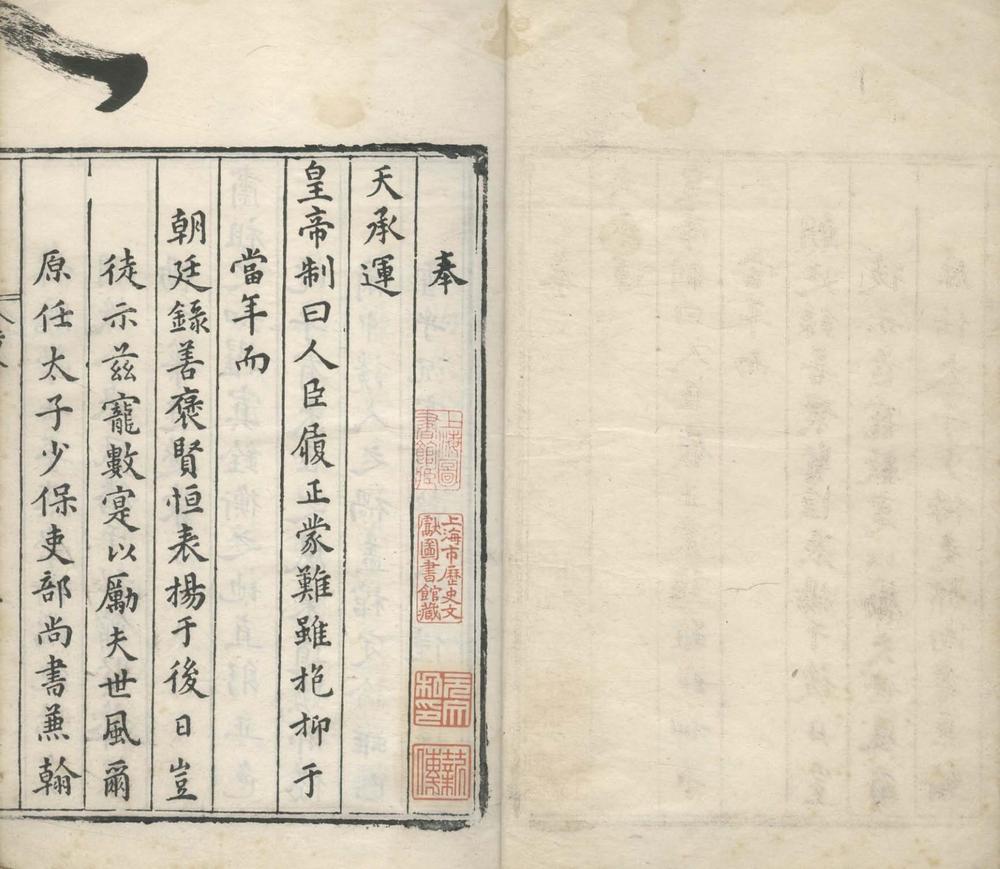 奉
天承運
皇帝制曰人臣履正蒙難雖抱抑于
當年而
朝廷錄善褒賢恒表揚于後日豈
徒示兹寵數寔以勵夫世風爾
原任太子少保吏部尚書兼翰
上海圖書館藏
上海市歷史文獻圖書館藏